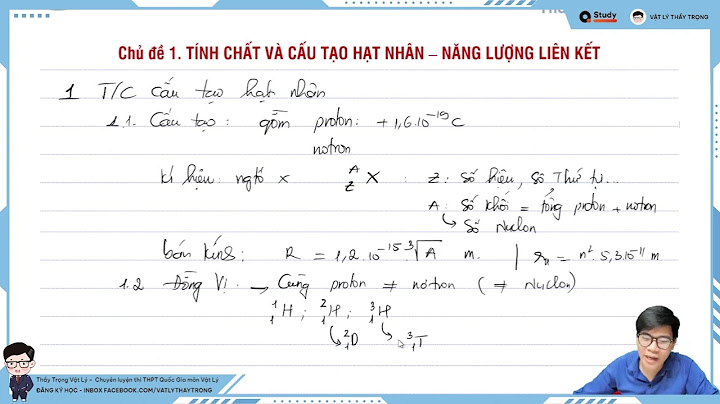 Study
VẬT LÝ THẦY TRỌNG
Chủ đề 1. TÍNH CHẤT VÀ CẤU TẠO HẠT NHÂN – NĂNG LƯỢNG LIÊN KẾT
1 T/C cấu tạo hạt nhân
1.1. Cấu tạo: gồm proton: +1,6.10⁻¹⁹C
nơtron
kí hiệu: ngtố X ᴬ_Z X : Z: số hiệu, số thứ tự...
A: số khối = tổng proton + nơtron
↳ số Nuclon
bán kính: R = 1,2.10⁻¹⁵ ∛A m. | rₙ = n².5,3.10⁻¹¹ m
1.2 Đồng Vị. → Cùng proton ≠ nơtron (≠ Nuclon)
¹₁H ; ²₁H ; ³₁H
↳ ²₁D ↳ ³₁T
Thầy Trọng Vật Lý - Chuyên luyện thi THPT Quốc Gia môn Vật Lý
ĐĂNG KÝ HỌC - INBOX FACEBOOK.COM/VATLYTHAYTRONG